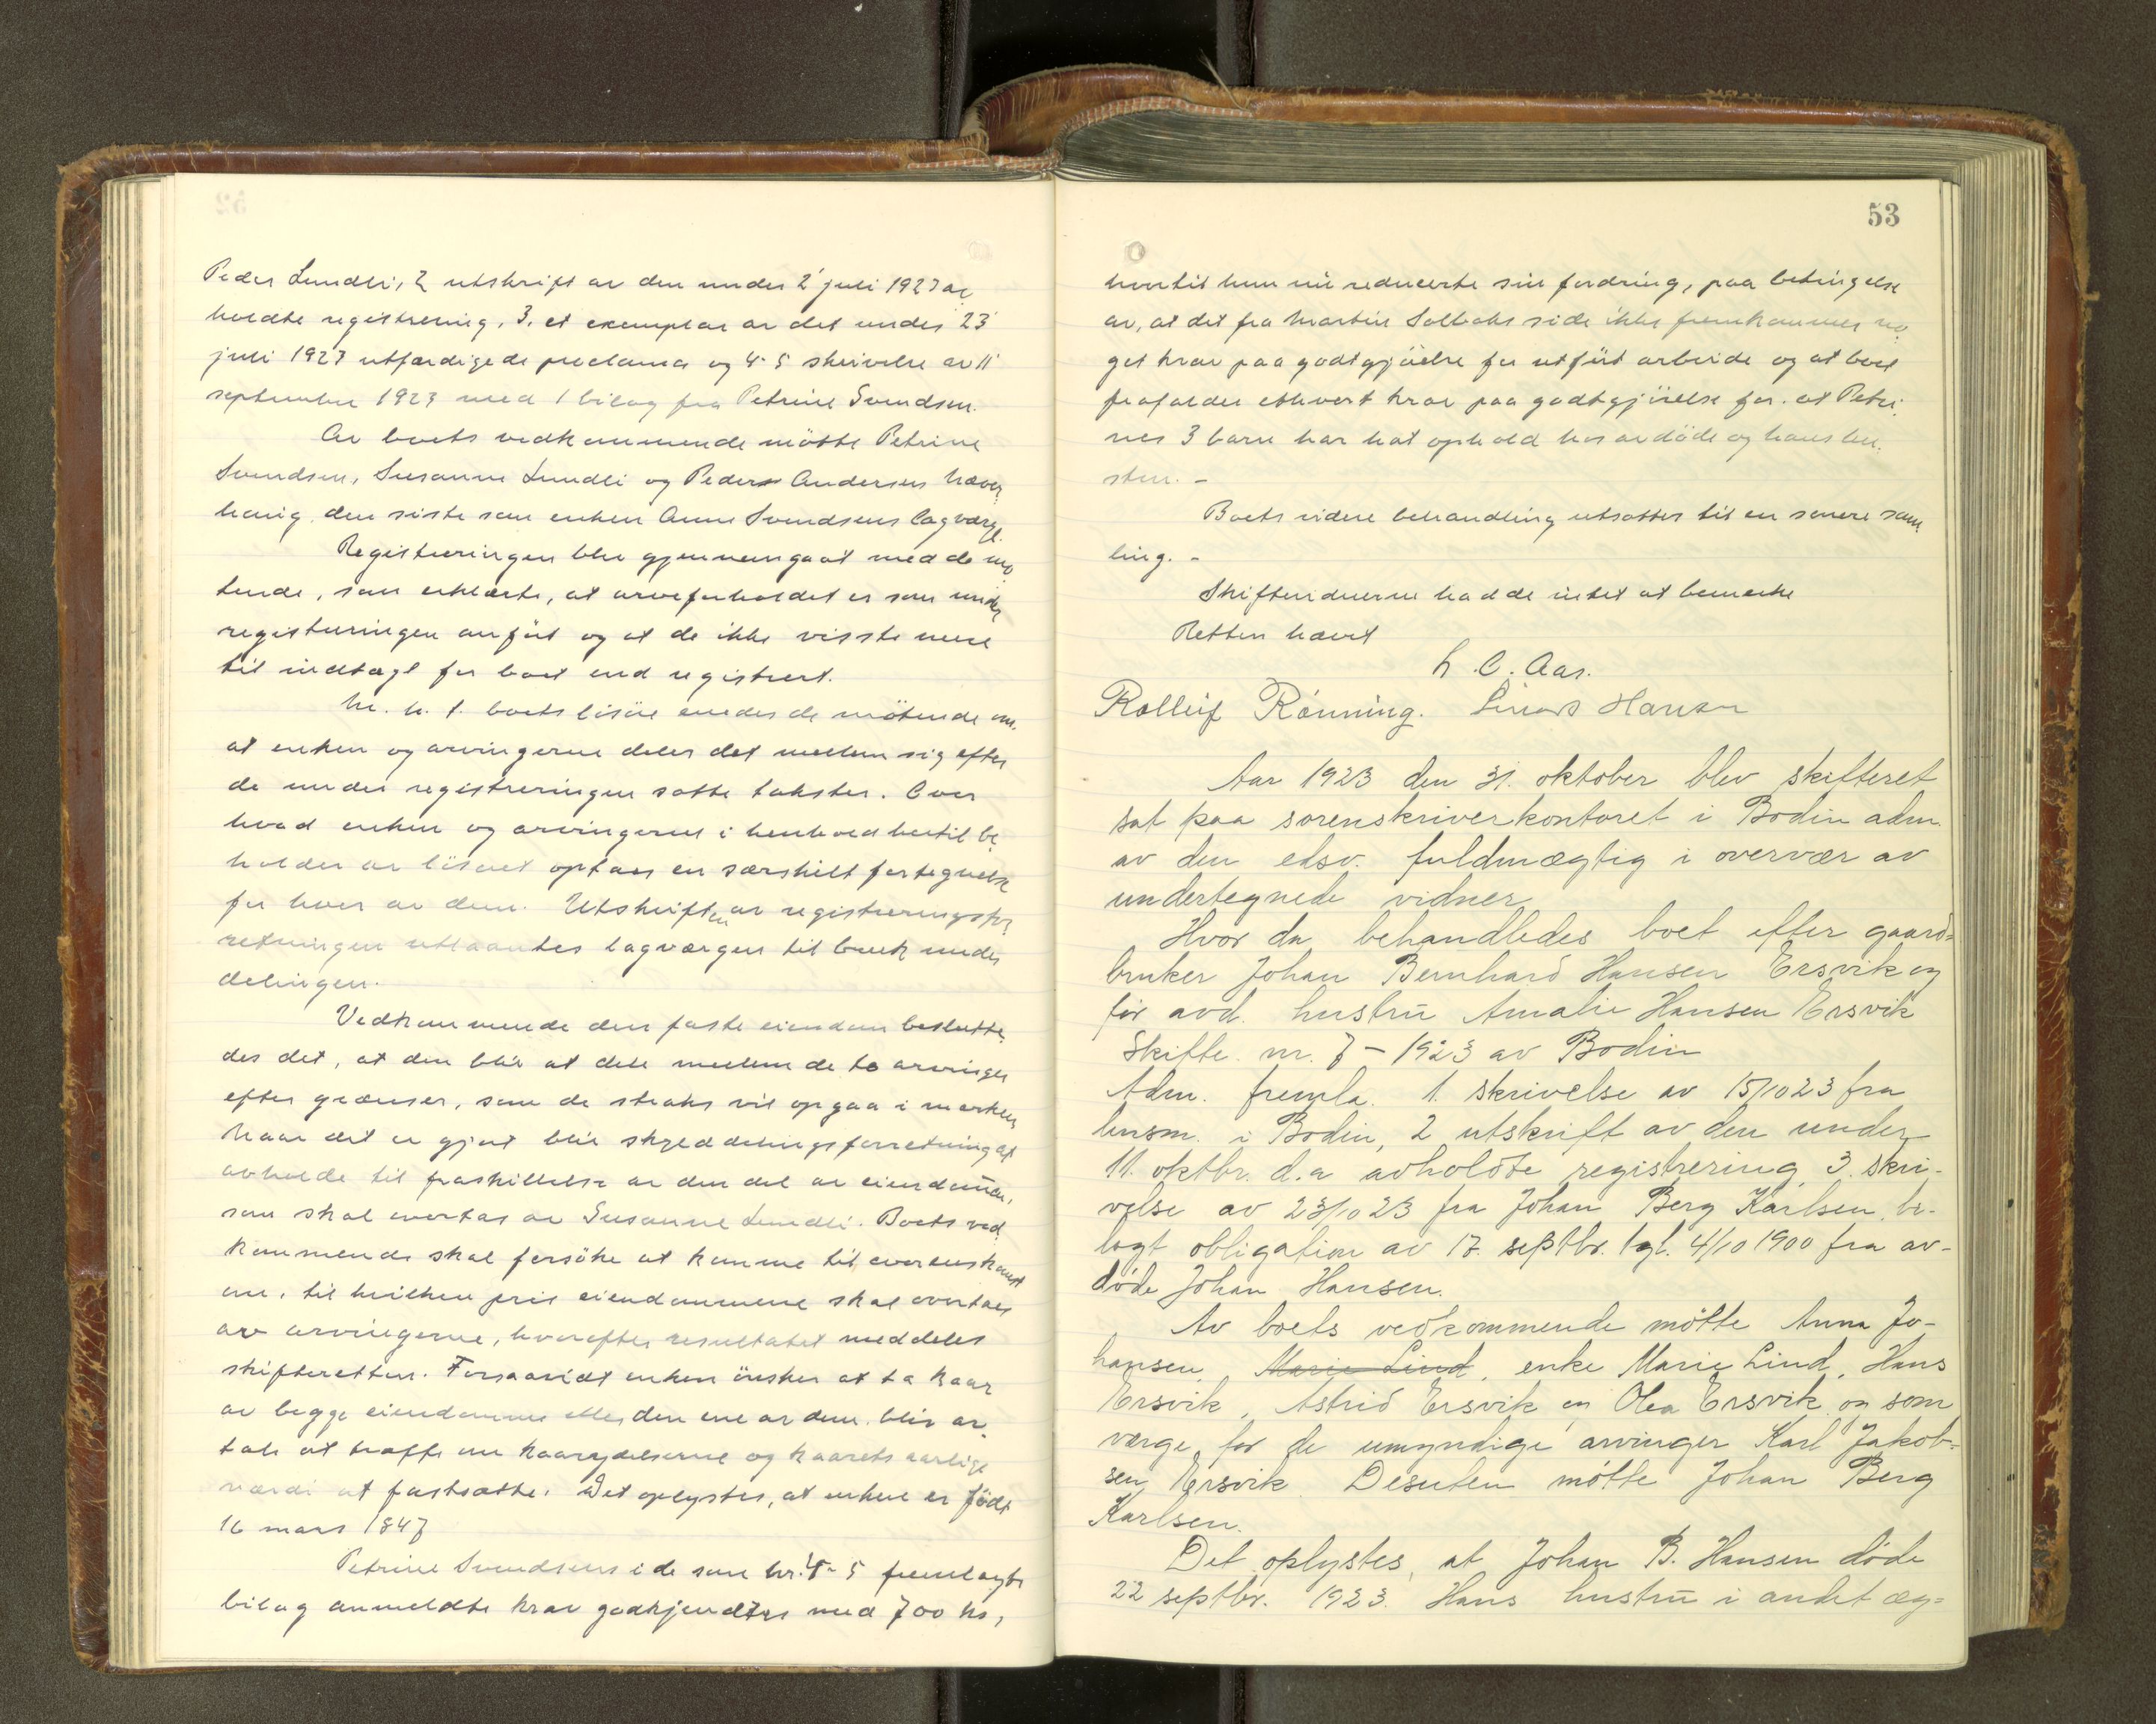 Peder Lundli, 2 utskrift av den under 2' juli 1923 av
holdte registrering, 3. et exemplar av det under 23'
juli 1923 utfærdigede proclama og 4-5 skrivelse av 11'
september 1923 med 1 bilag fra Petrine Svendsen.
Av boets vedkommende mötte Petrine
Svendsen, Susanne Lundli og Peder Andersen
den siste som enken Anne Svendsens lagværge.
Registreringen blev gjennemgaat med de mö
tende, som erklærte, at arveforholdet er som under
registreringen anfört og at de ikke visste mere
til indtægt for boet end registrert.
M. h. t. boets lösöre enedes de mötende om,
at enken og arvingerne deler det mellem sig efter
de under registreringen satte takster. Over
hvad enken og arvingerne i henhold hertil be
holder av lösöret optaes en særskilt fortegnelse
for hver av dem. Utskriften av registreringsfor
retningen utlaantes lagværgen til bruk under
delingen.
Vedkommende den faste eiendom beslutte
des det, at den blir at dele mellem de to arvinger
efter grænser, som de straks vil opgaa i marken
Naar det er gjort blir skylddelingsforretning at
avholde til fraskillelse av den del av eiendommen,
som skal overtas av Susanne Lundli. Boets ved
kommende skal forsöke at komme til overenskomst
om, til hvilken pris eiendommene skal overtaes
av arvingerne, hvorefter resultatet meddeles
skifteretten. Forsaavidt enken önsker at ta kaar
av begge eiendomme eller den ene av dem, blir av
tale at træffe om kaarydelserne og kaarets aarlige
værdi at fastsætte. Det oplystes, at enken er födt
16 mars 1847
Petrine Svendsens i de som nr. 4-5 fremlagte
bilag anmeldte krav godkjendtes med 700 kr,
53
hvortil hun nu reducerte sin fordring, paa betingelse
av, at det fra Martin Solbaks side ikke fremkommer no
get krav paa godtgjörelse for utfört arbeide og at boet
frafalder ethvert krav paa godtgjörelse for at Petri
nes 3 barn har hat ophold hos avdöde og hans hu
stru. -
Boets videre behandling utsattes til en senere sam
ling. -
Skiftevidnerne hadde intet at bemerke
Retten hævet
h. C. Aas.
Rolleif Rønning. Hansen
Aar 1923 den 31. oktober blev skifteret
sat paa sorenskriverkontoret i Bodin adm.
av den edsv. fuldmægtig i overvær av
undertegnede vidner
Hvor da behandledes boet efter gaard=
bruker Johan Bernhard Hansen Ersvik og
før avd. hustru Amalie Hansen Ersvik
Skifte nr. 7 - 1923 av Bodin
Adm. fremla. 1. skrivelse av 15/10 23 fra
lensm. i Bodin, 2 utskrift av den under
11. oktbr. d.a avholdte registrering, 3. skri-
velse av 23/10 23 fra Johan Berg Karlsen, be-
lagt obligation av 17. septbr. tgl. 4/10 1900 fra av-
døde Johan Hansen.
Av boets vedkommende møtte Anna Jo-
hansen, Marie Lind, enke Marie Lind, Hans
Ersvik, Astrid Ersvik og Olea Ersvik og som
værge for de umyndige arvinger Karl Jakob-
sen Ersvik. Desuten møtte Johan Berg
Karlsen.
Det oplystes, at Johan B. Hansen døde
22 septbr. 1923. Hans hustru i andet æg=